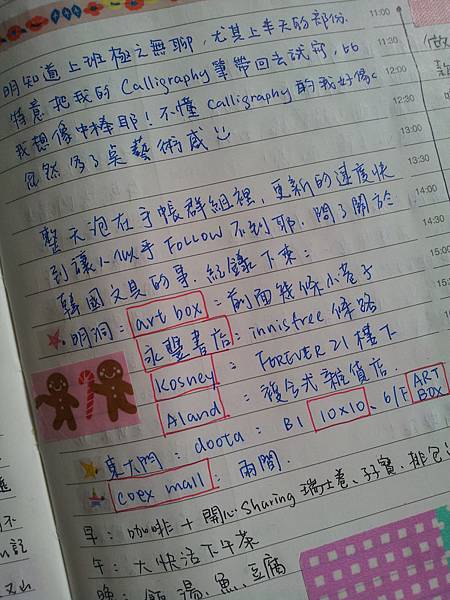 11:00
明知道上班極之無聊，尤其上半天的部份.
特意把我的 Calligraphy 筆帶回去試寫，比
12:00
我想像中棒耶！不懂 Calligraphy 的我好像
12:30
忽然多了臭藝術感
13:00
13:30
整天泡在手帳群組裡，更新的速度快
14:00
到讓人似乎 FOLLOW 不到耶. 問了關於
14:30
韓國文具的事，紀錄下來：
明洞：art box：前面幾條小巷子
15:00
永豐書店：innisfree 條路
Kosney：FOREVER 21 樓下
Aland：複合式雜貨店.
東大門：doota：B1 10x10、6/F ART BOX
coex mall：兩間.
早：咖啡 + 開心 Sharing 瑞士卷、孖寶、排包
午：大快活下午茶
晚：飯、湯、魚、豆腐